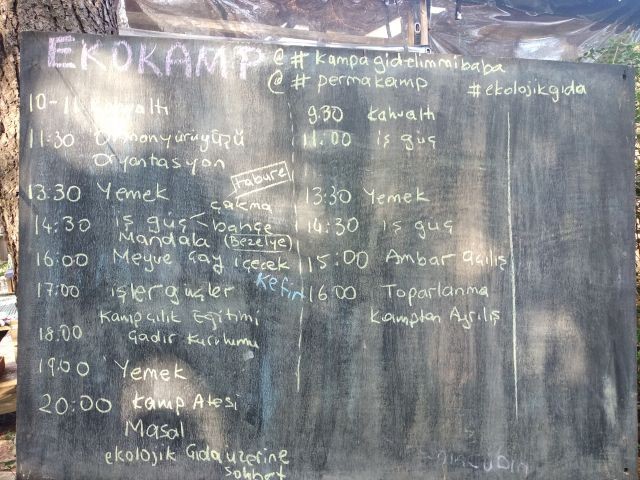 EKOKAMP
@#kampagidelimmibaba
@#permakamp #ekolojikgıda
10-11 Kahvaltı
11:30 Ormanyürüyüşü
Oryantasyon
13:30 Yemek
tabure
çakma
14:30 iş güç < bahçe
Mandala (Bezelye)
16:00 Meyve Çay içecek
Kefir
17:00 işler güçler
Kampçılık Eğitimi
18:00 Çadır Kurulumu
19:00 Yemek
20:00 Kamp Ateşi
Masal
ekolojik Gıda üzerine
sohbet
9:30 Kahvaltı
11:00 iş güç
13:30 Yemek
14:30 iş güç
15:00 Ambar Açılış
16:00 Toparlanma
Kamptan Ayrılış